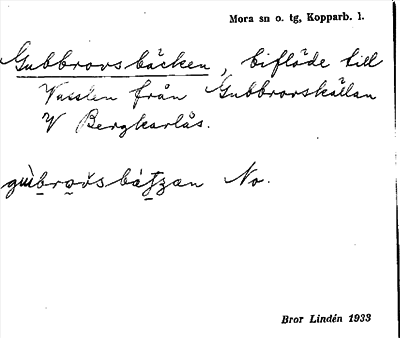 Mora sn o. tg, Kopparb. l.
Gubbrovsbäcken, biflöde till
Vasslen från Gubbrovskällan
V Bergkarlås.
No.
Bror Lindén 1933